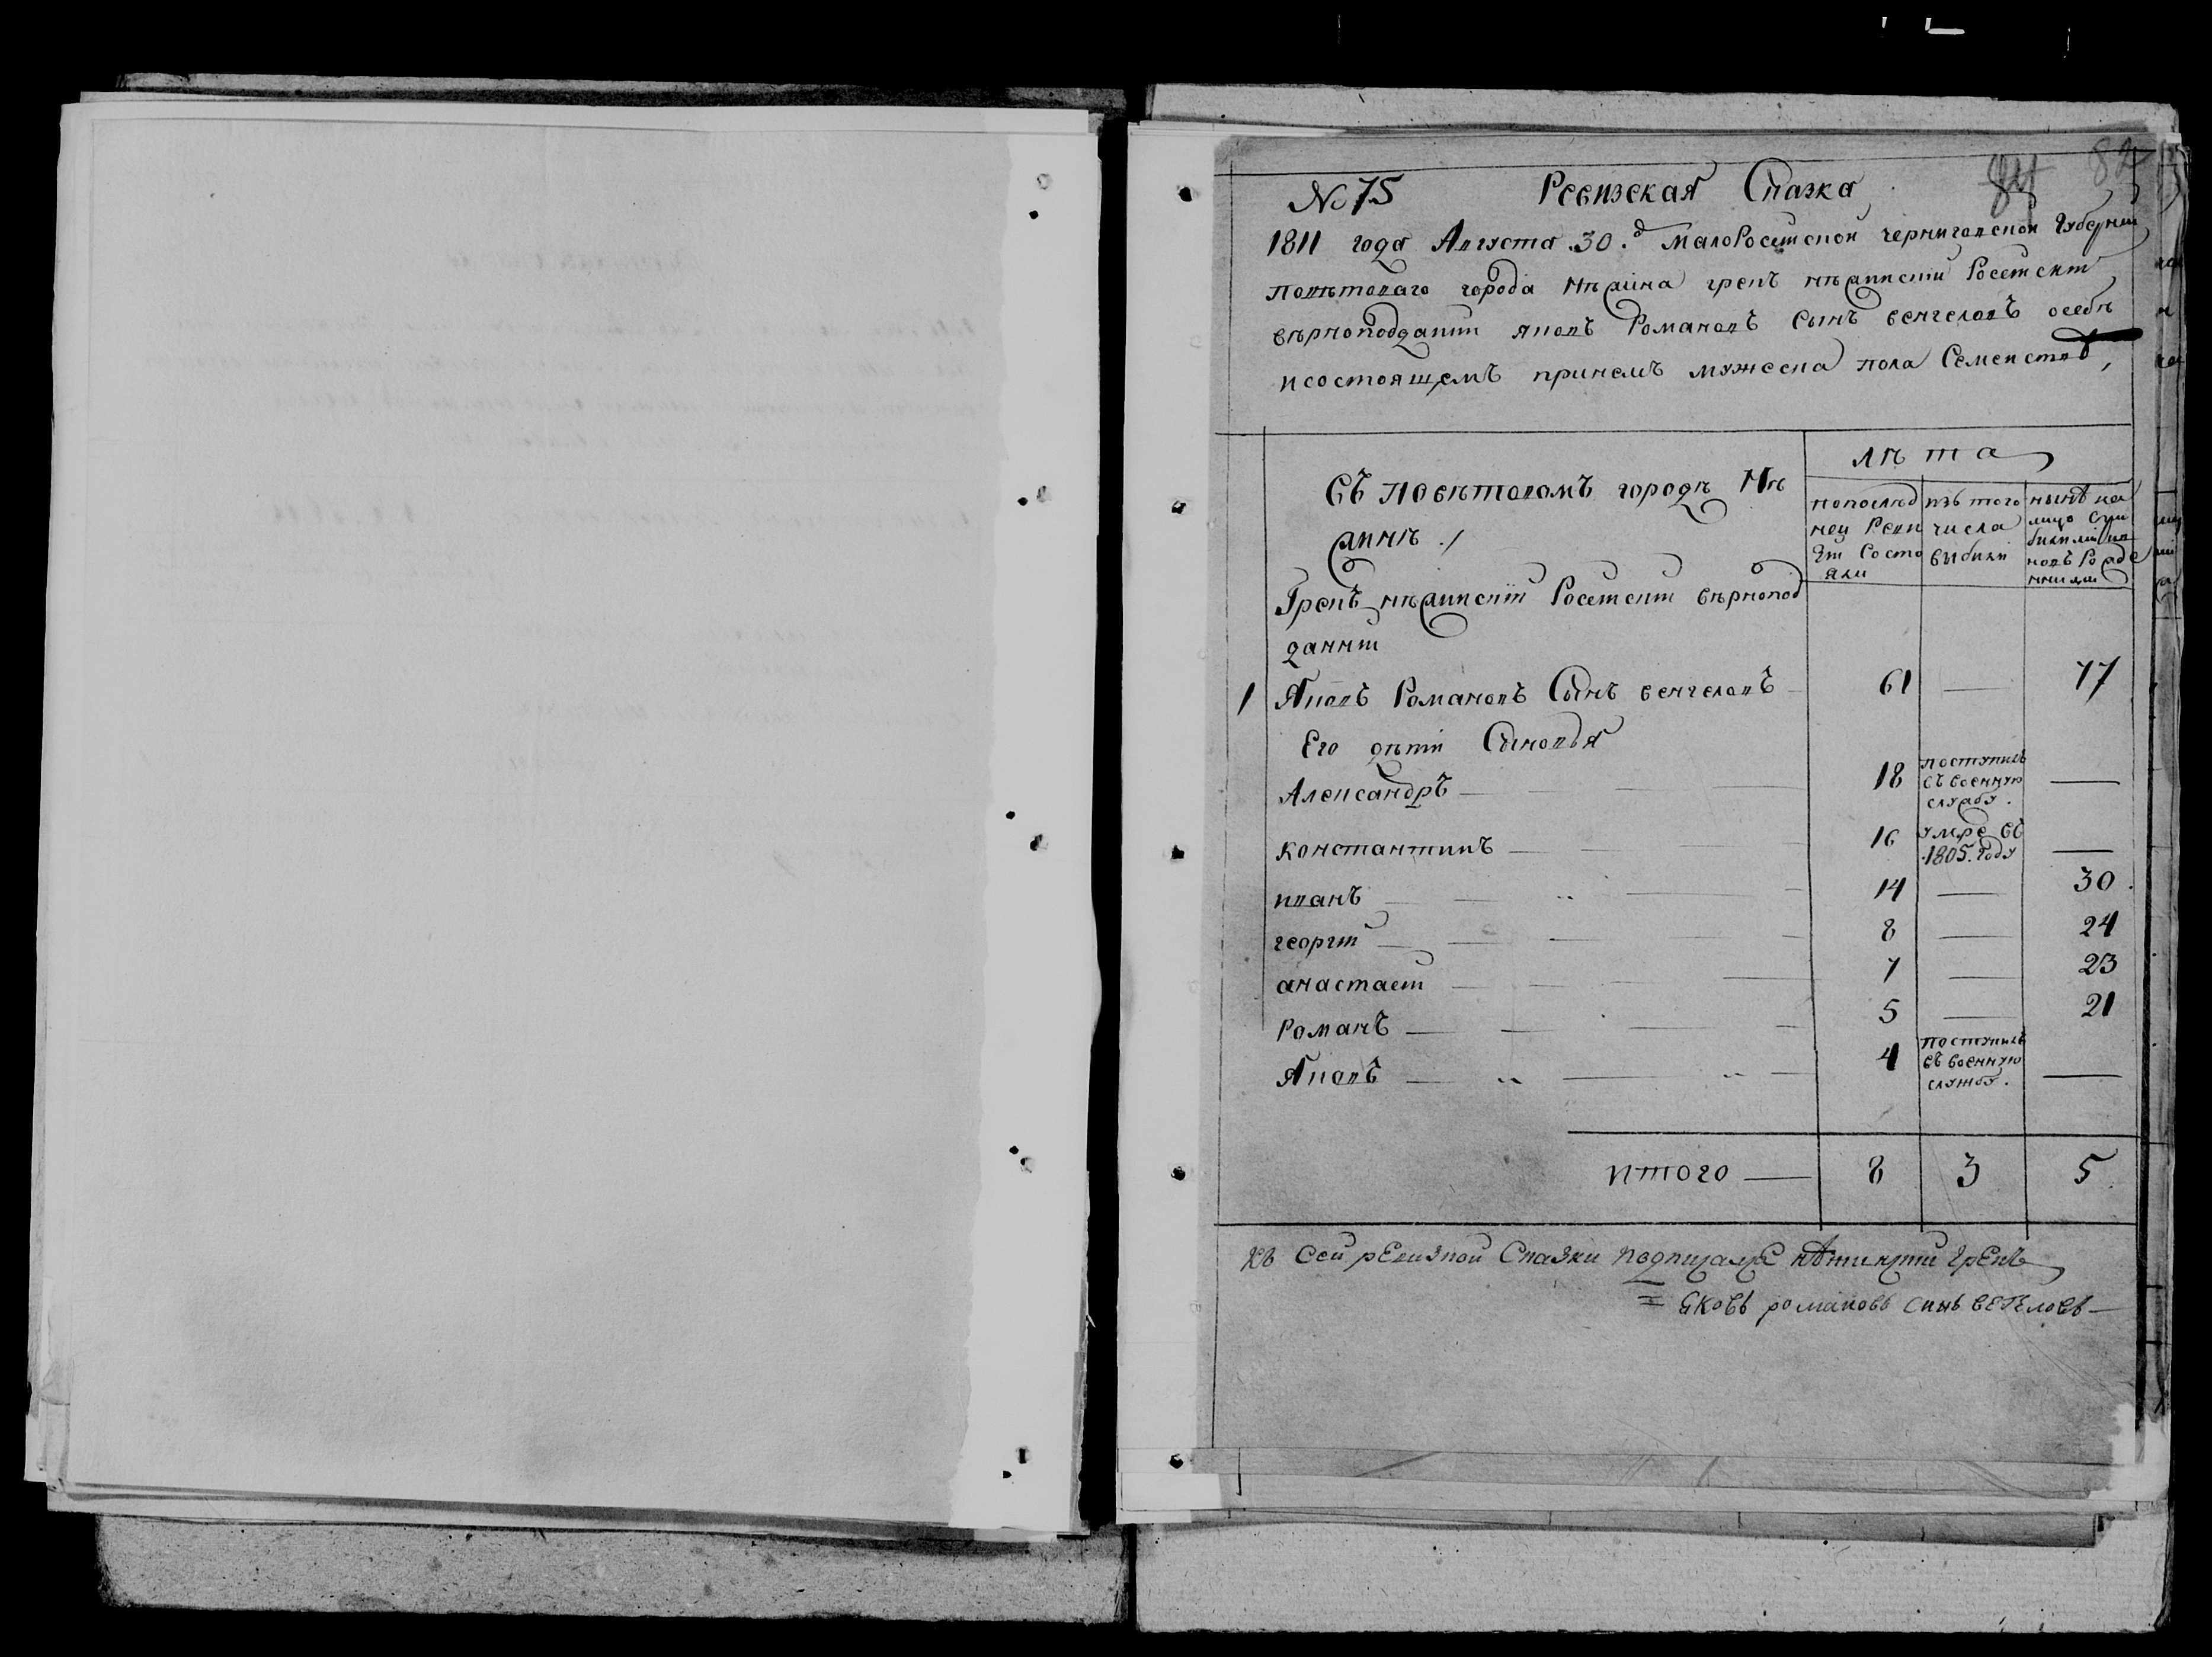 84 82
№ 75 Ревизская Сказка
1811 года Августа 30.д МалоРосийской черниговской Губернии
поветоваго города Нежина грекъ нежинский Росийский
вѣрноподданий яковъ Романовъ сынъ венгеловъ о себѣ
и состоящемъ при немъ мужеска пола Семействѣ,
Въ поветовомъ городѣ Нѣ
жинѣ ./
лѣта
по послѣд
ней Реви
зии Состо
яли
изъ того
числа
выбили
нынѣ на
лицо
Грекъ нѣжинский Росийский вѣрнопод
данний
1 Яковъ Романовъ Сынъ венгеловъ 61 — 77
Его дѣти Сыновья
Александръ — 18 поступилъ въ военную службу. —
константинъ — 16 умре въ 1805. году —
иванъ — 14 — 30.
георгий — 8 — 24
анастасий — 7 — 23
Романъ — 5 — 21
Яковъ — 4 поступилъ въ военную службу. —
итого — 8 3 5
Къ сей ревизкой Сказки подписался нѣжинский грекъ
= Яковъ романовъ синъ венгеловъ —